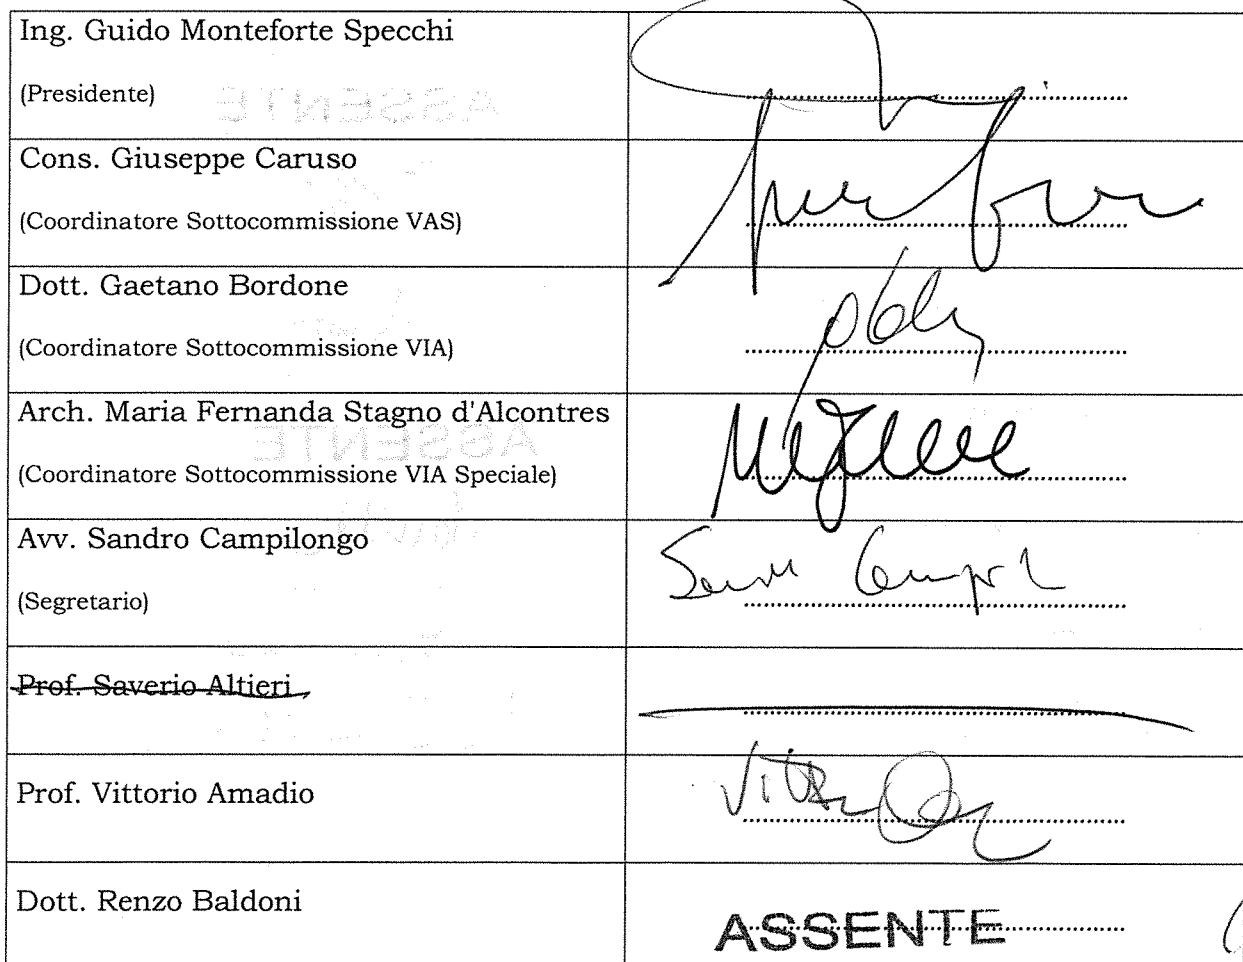 Ing. Guido Monteforte Specchi
(Presidente)
Cons. Giuseppe Caruso
(Coordinatore Sottocommissione VAS)
Dott. Gaetano Bordone
(Coordinatore Sottocommissione VIA)
Arch. Maria Fernanda Stagno d'Alcontres
(Coordinatore Sottocommissione VIA Speciale)
Avv. Sandro Campilongo
(Segretario)
Prof. Saverio Altieri
Prof. Vittorio Amadio
Dott. Renzo Baldoni
ASSENTE